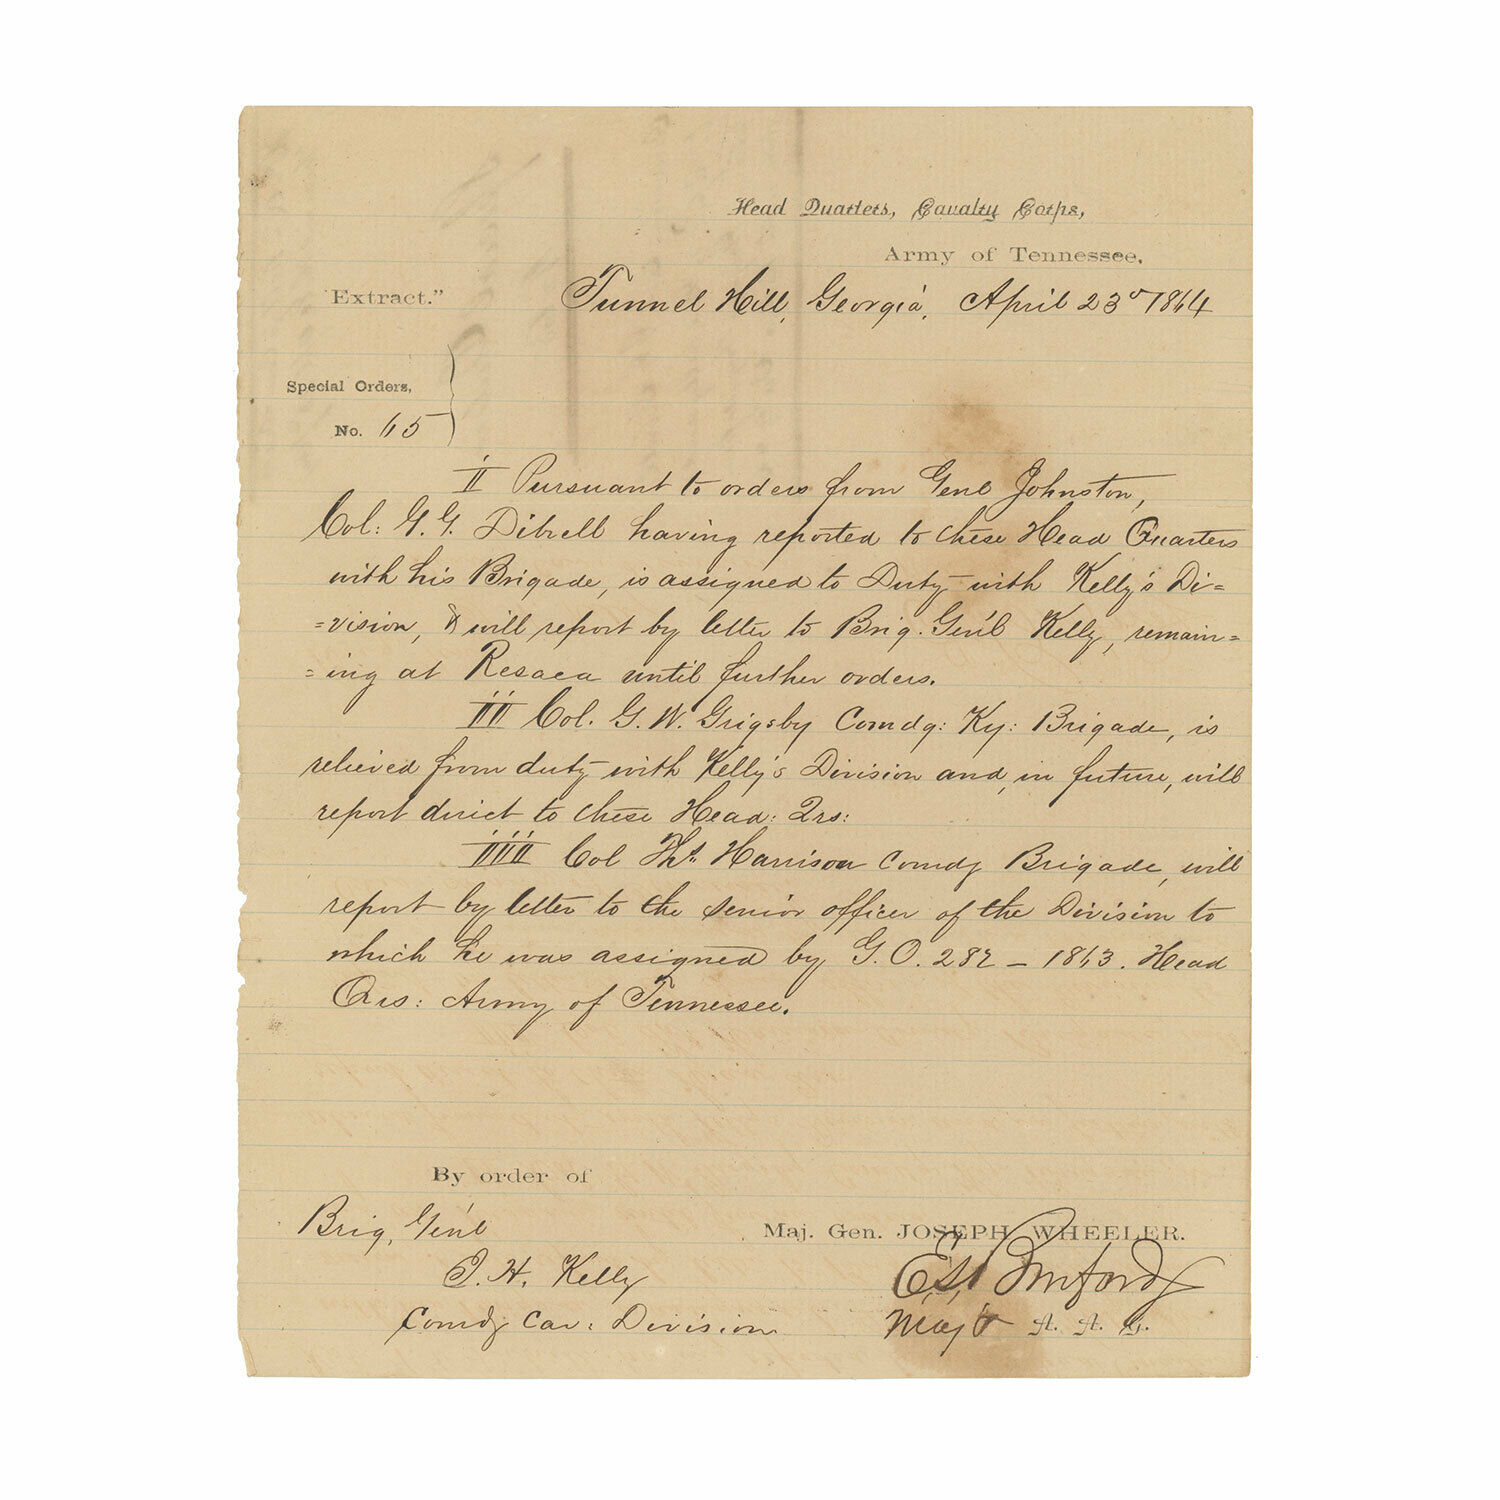 Head Quarters, Cavalry Corps,
Army of Tennessee,
"Extract."
Tunnel Hill, Georgia, April 23d 1864
Special Orders,
No. 65
II Pursuant to orders from Genl Johnston,
Col: G. G. Dibrell having reported to these Head Quarters
with his Brigade, is assigned to Duty with Kelly's Di=
=vision, & will report by letter to Brig. Gen'l Kelly, remain=
=ing at Resaca until further orders.
III Col. G. W. Grigsby Comdg: Ky: Brigade, is
relieved from duty with Kelly's Division and, in future, will
report direct to these Head: Qrs:
IIII Col Ths. Harrison Comdg Brigade, will
report by letter to the senior officer of the Division to
which he was assigned by G. O. 282 – 1863. Head
Qrs: Army of Tennessee.
By order of
Maj. Gen. JOSEPH WHEELER.
Brig, Gen'l
J. H. Kelly
Comdg Cav: Division
E. S. Burford
Maj & A. A. G.